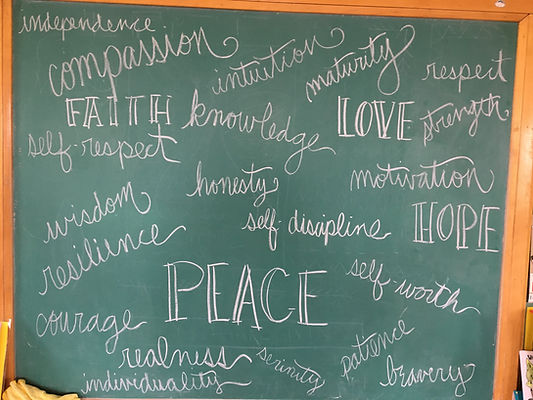 independence
compassion
intuition
maturity
respect
FAITH
knowledge
LOVE
strength
self-respect
honesty
motivation
wisdom
self-discipline
HOPE
resilience
PEACE
self-worth
courage
realness
serinity
patience
individuality
bravery